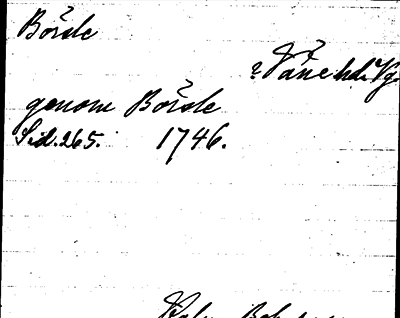 Börsle
? Väne hd. Vg.
genom Börsle
Sid. 265. 1746.